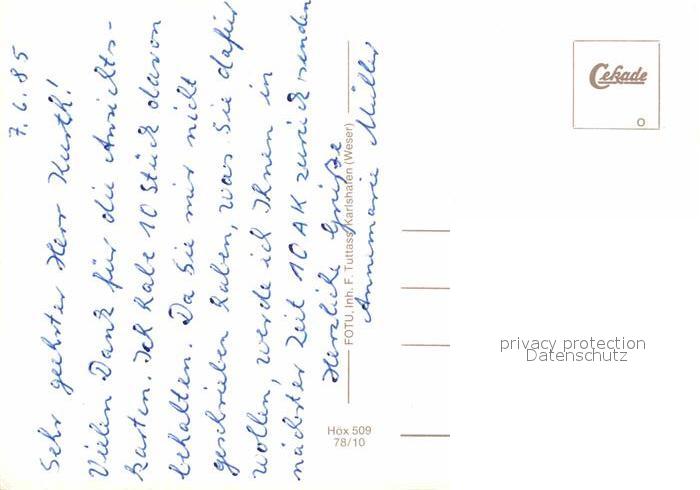 7.6.85
Sehr geehrter Herr Kurth!
Vielen Dank für die Ansichts-
karten. Ich habe 10 Stück davon
behalten. Da Sie mir nicht
geschrieben haben, was Sie dafür
wollen, werde ich Ihnen in
nächster Zeit 10 AK zurück senden
Herzliche Grüße
Annemarie Müller
FOTU, Inh. F. Tuttass, Karlshafen (Weser)
Höx 509
78/10
Cekade
privacy protection
Datenschutz